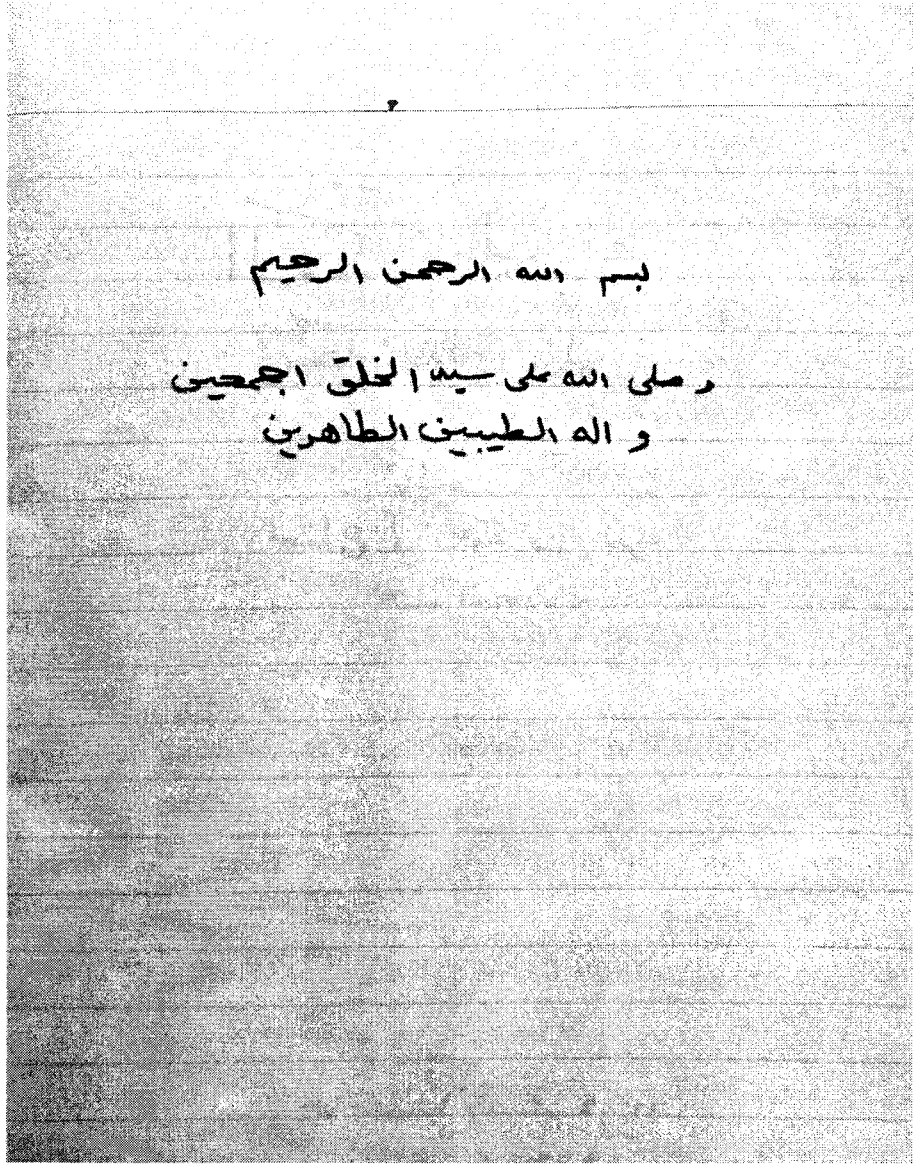 بسم الله الرحمن الرحيم
و صلى الله على سيد الخلق اجمعين
و اله الطيبين الطاهرين